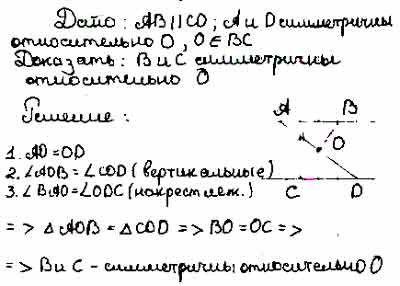 Дано: AB || CD; A и D симметричны
относительно O, O ∈ BC
Доказать: B и C симметричны
относительно O
Решение:
A B
O
1. AO = OD
2. ∠AOB = ∠COD (вертикальные)
3. ∠BAO = ∠ODC (накрест леж.)
C D
=> △AOB = △COD => BO = OC =>
=> B и C - симметричны относительно O